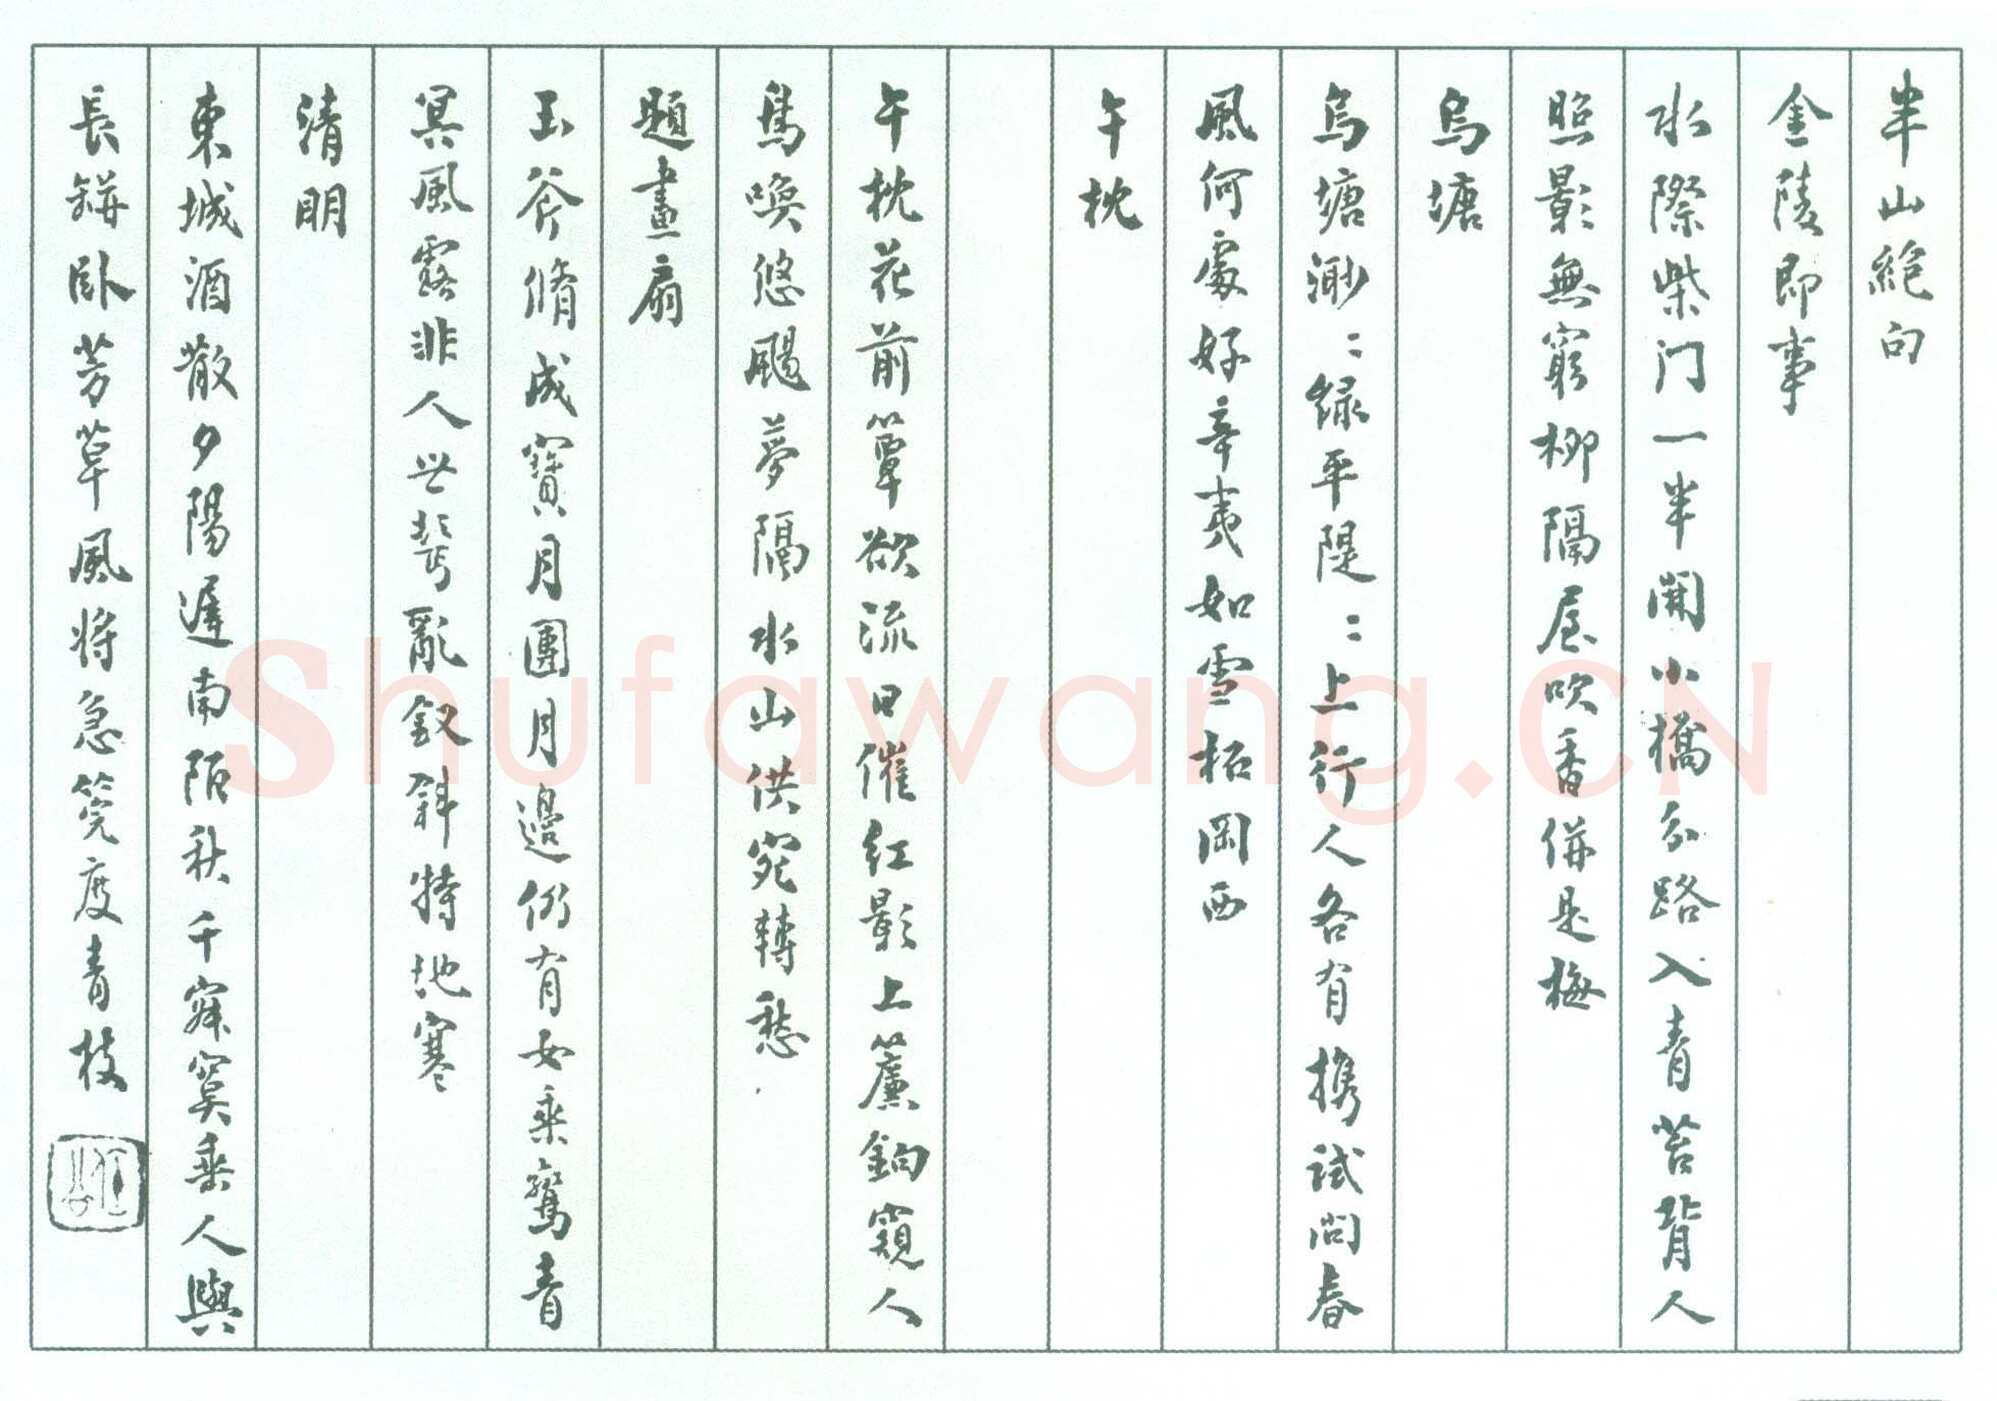 半山絕句
金陵即事
水際柴门一半開小橋分路入青苔背人
照影無窮柳隔屋吹香併是梅
烏塘
烏塘渺〻綠平隄〻上行人各有携試問春
風何處好辛夷如雪柘岡西
午枕
午枕花前簟欲流日催紅影上簾鉤窺人
鳥喚悠颺夢隔水山供宛轉愁
題畫扇
玉斧脩成寶月團月邊仍有女乘鸞青
冥風露非人世鬢亂釵斜特地寒
清明
東城酒散夕陽遲南陌秋千寂寞垂人與
長缾卧芳草風将急筦度青枝
Shufawang.CN